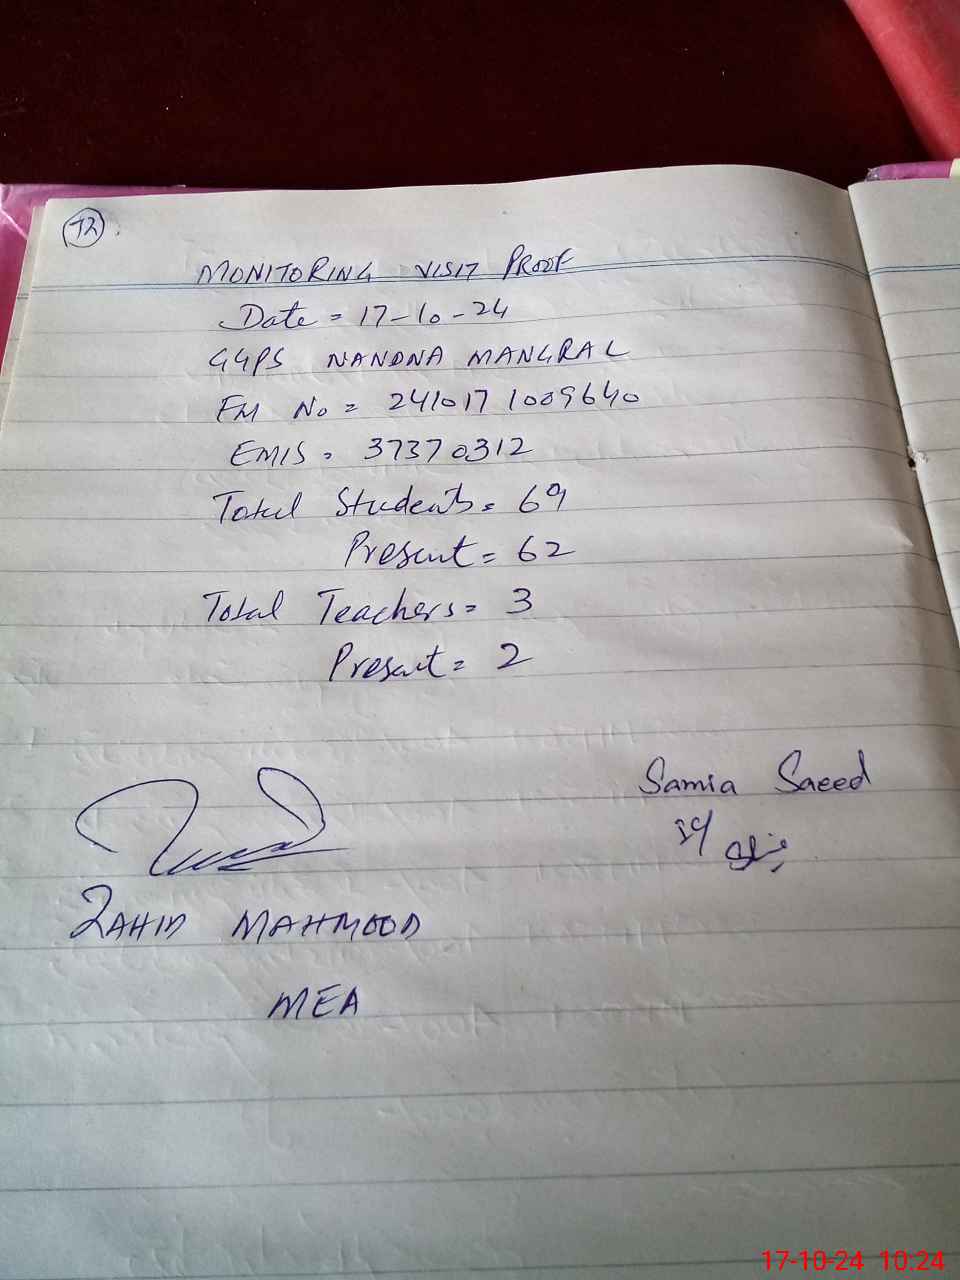 72
MONITORING VISIT PROOF
Date = 17-10-24
GGPS NANDNA MANGRAL
FM No = 241017 1009640
EMIS = 37370312
Total Students = 69
Present = 62
Total Teachers = 3
Present = 2
Samia Saeed
ZAHID MAHMOOD
MEA
17-10-24 10:24